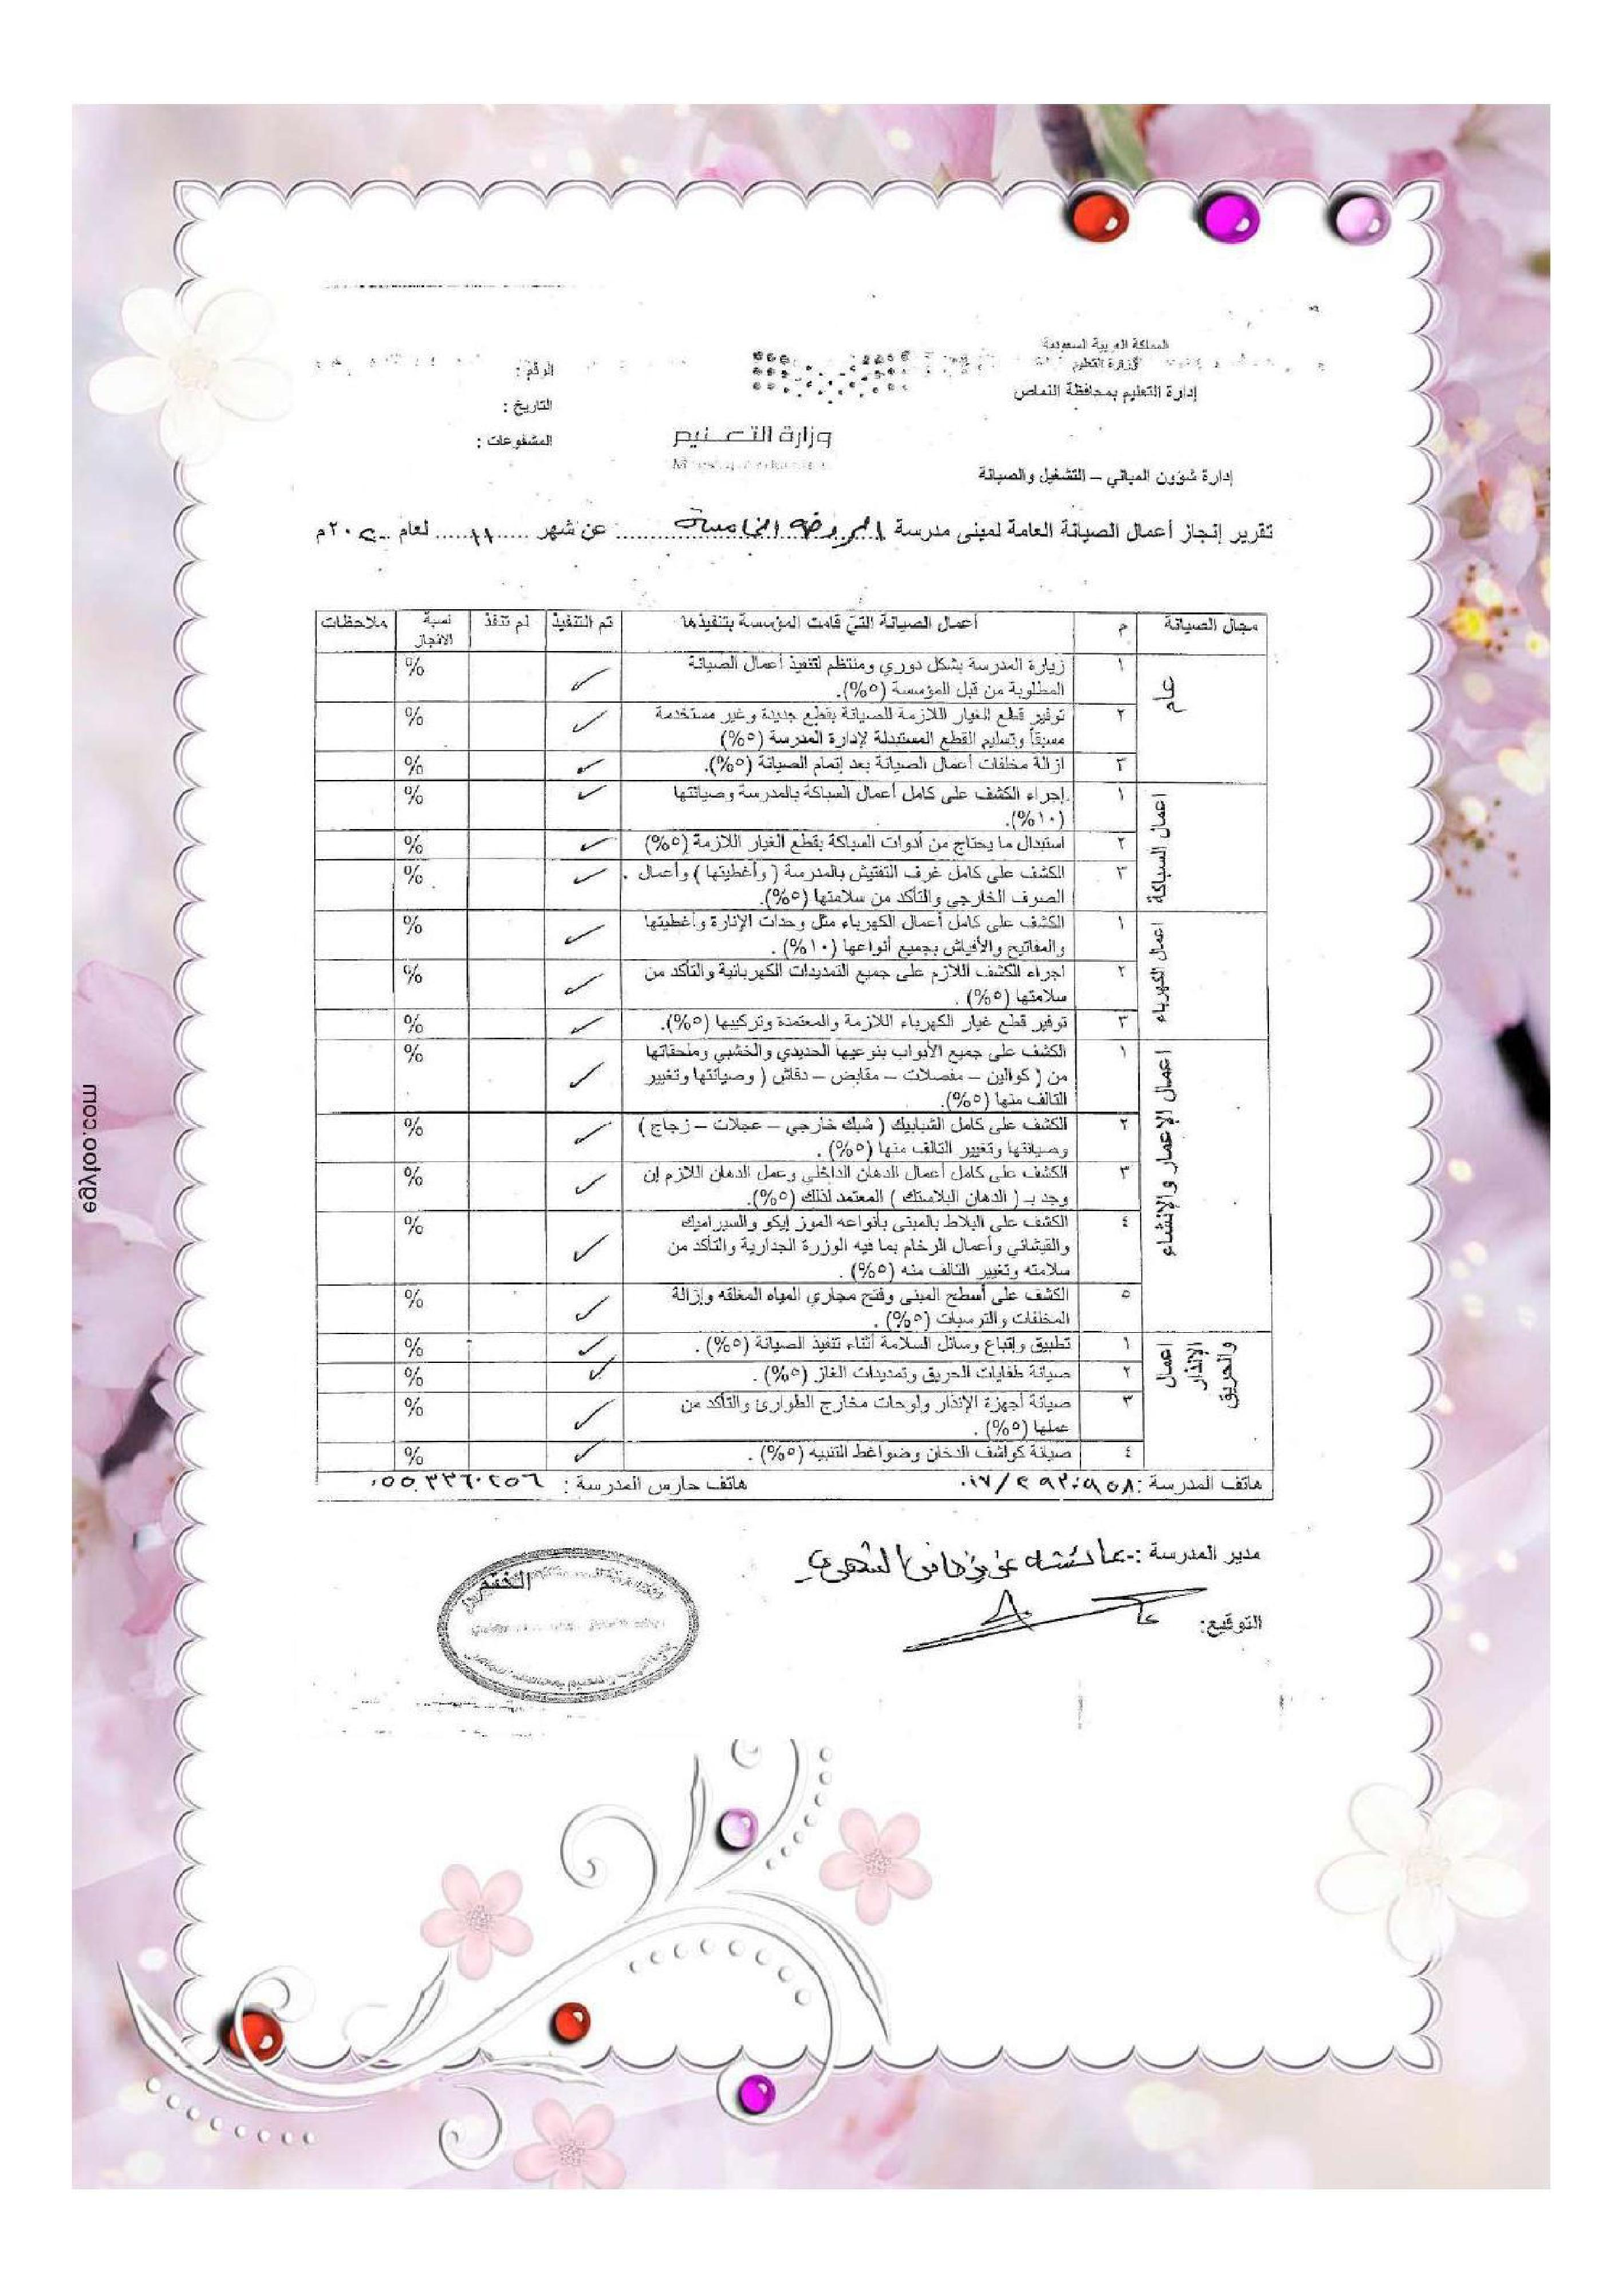 المملكة العربية السعودية
وزارة التعليم
إدارة التعليم بمحافظة النماص
إدارة شؤون المباني – التشغيل والصيانة
وزارة التعليم
الرقم :
التاريخ :
المشفوعات :
تقرير إنجاز أعمال الصيانة العامة لمبنى مدرسة الروضة الخامسة عن شهر ١١ لعام ٢٠٢٠م
مجال الصيانة م أعمال الصيانة التي قامت المؤسسة بتنفيذها تم التنفيذ لم تنفذ نسبة الانجاز ملاحظات
عام
١ زيارة المدرسة بشكل دوري ومنتظم لتنفيذ أعمال الصيانة ✓ %
المطلوبة من قبل المؤسسة (٥%).
٢ توفير قطع الغيار اللازمة للصيانة بقطع جديدة وغير مستخدمة ✓ %
مسبقاً وتسليم القطع المستبدلة لإدارة المدرسة (٥%)
٣ ازالة مخلفات أعمال الصيانة بعد إتمام الصيانة (٥%). ✓ %
اعمال السباكة
١ إجراء الكشف على كامل أعمال السباكة بالمدرسة وصيانتها ✓ %
(١٠%).
٢ استبدال ما يحتاج من أدوات السباكة بقطع الغيار اللازمة (٥%) ✓ %
٣ الكشف على كامل غرف التفتيش بالمدرسة ( وأغطيتها ) وأعمال ✓ %
الصرف الخارجي والتأكد من سلامتها (٥%).
اعمال الكهرباء
١ الكشف على كامل أعمال الكهرباء مثل وحدات الإنارة وأغطيتها ✓ %
والمفاتيح والأفياش بجميع أنواعها (١٠%) .
٢ اجراء الكشف اللازم على جميع التمديدات الكهربائية والتأكد من ✓ %
سلامتها (٥%) .
٣ توفير قطع غيار الكهرباء اللازمة والمعتمدة وتركيبها (٥%). ✓ %
اعمال الإعمار والإنشاء
١ الكشف على جميع الأبواب بنوعيها الحديدي والخشبي وملحقاتها ✓ %
من ( كوالين – مفصلات – مقابض – دقاش ) وصيانتها وتغيير
التالف منها (٥%).
٢ الكشف على كامل الشبابيك ( شبك خارجي – عجلات – زجاج ) ✓ %
وصيانتها وتغيير التالف منها (٥%) .
٣ الكشف على كامل أعمال الدهان الداخلي وعمل الدهان اللازم إن ✓ %
وجد بـ ( الدهان البلاستك ) المعتمد لذلك (٥%).
٤ الكشف على البلاط بالمبنى بأنواعه الموزايكو والسيراميك ✓ %
والقيشاني وأعمال الرخام بما فيه الوزرة الجدارية والتأكد من
سلامته وتغيير التالف منه (٥%) .
٥ الكشف على أسطح المبنى وفتح مجاري المياه المغلقه وإزالة ✓ %
المخلفات والترسبات (٥%) .
اعمال الإنذار والحريق
١ تطبيق وإتباع وسائل السلامة أثناء تنفيذ الصيانة (٥%) . ✓ %
٢ صيانة طفايات الحريق وتمديدات الغاز (٥%) . ✓ %
٣ صيانة أجهزة الإنذار ولوحات مخارج الطوارئ والتأكد من ✓ %
عملها (٥%) .
٤ صيانة كواشف الدخان وضواغط التنبيه (٥%) . ✓ %
هاتف المدرسة : ٠١٧/٢٩٣٠٩٥٨ هاتف حارس المدرسة : ٠٥٥٠٣٣٦٠٢٥٦
مدير المدرسة :- عائشه الشهري
التوقيع:
الختم
egyfoo.com